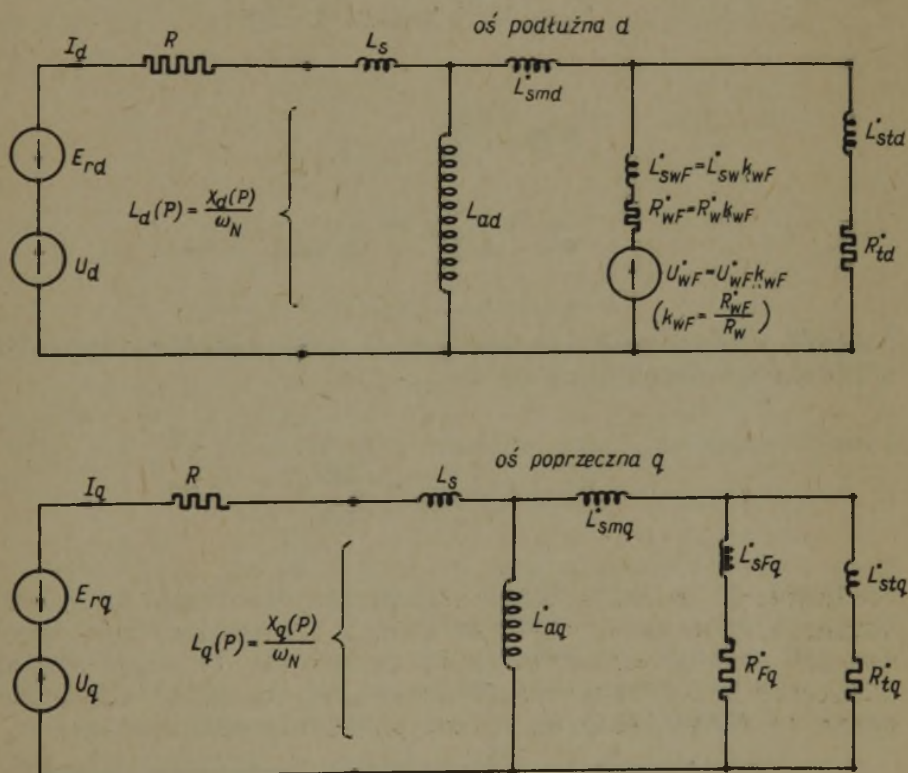 oś podłużna d
I_d
R
L_s
L˙_smd
E_rd
U_d
L_d(P) = X_d(P)/ω_N
L_ad
L˙_swF = L˙_sw k_wF
R˙_wF = R˙_w k_wF
U˙_wF = U˙_wF k_wF
(k_wF = R˙_wF/R_w)
L˙_std
R˙_td
oś poprzeczna q
I_q
R
L_s
L˙_smq
E_rq
U_q
L_q(P) = X_q(P)/ω_N
L˙_aq
L˙_sFq
R˙_Fq
L˙_stq
R˙_tq